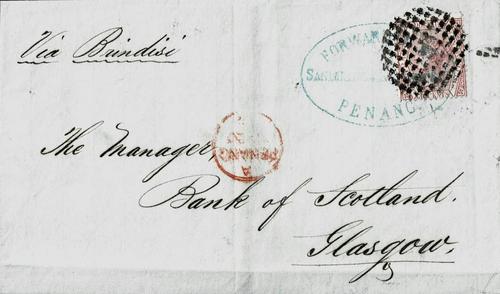 Via Brindisi
FORWAR
PENANG
PENANG
The Manager,
Bank of Scotland.
Glasgow.